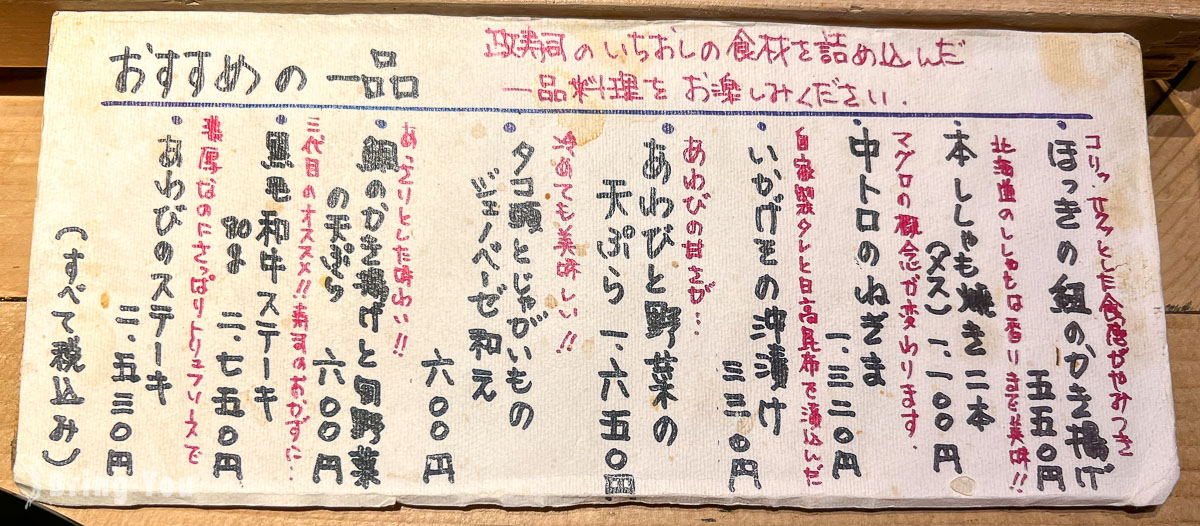 おすすめの一品
政寿司のいちおしの食材を詰め込んだ
一品料理をお楽しみください.
コリッ、サクッとした食感がやみつき
・ほっきの紐のかき揚げ
五五〇円
北海道のししゃもは香りまで美味!!
・本ししゃも焼き二本
(メス) 一、一〇〇円
マグロの概念が変わります.
・中トロのねぎま
一、三二〇円
自家製タレと日高昆布で漬込んだ
・いかげその沖漬け
三三〇円
あわびの甘さが…
・あわびと野菜の
天ぷら 一、六五〇円
冷めても美味しい!!
・タコ頭とじゃがいもの
ジェノベーゼ和え
六〇〇円
あっさりとした味わい!!
・鯛のかき揚げと旬野菜
の天ぷら 六〇〇円
三代目のオススメ!!寿司のおかずに…
・黒毛和牛ステーキ
80g 二、七五〇円
濃厚なのにさっぱりトリュフソースで
・あわびのステーキ
二、五三〇円
(すべて税込み)